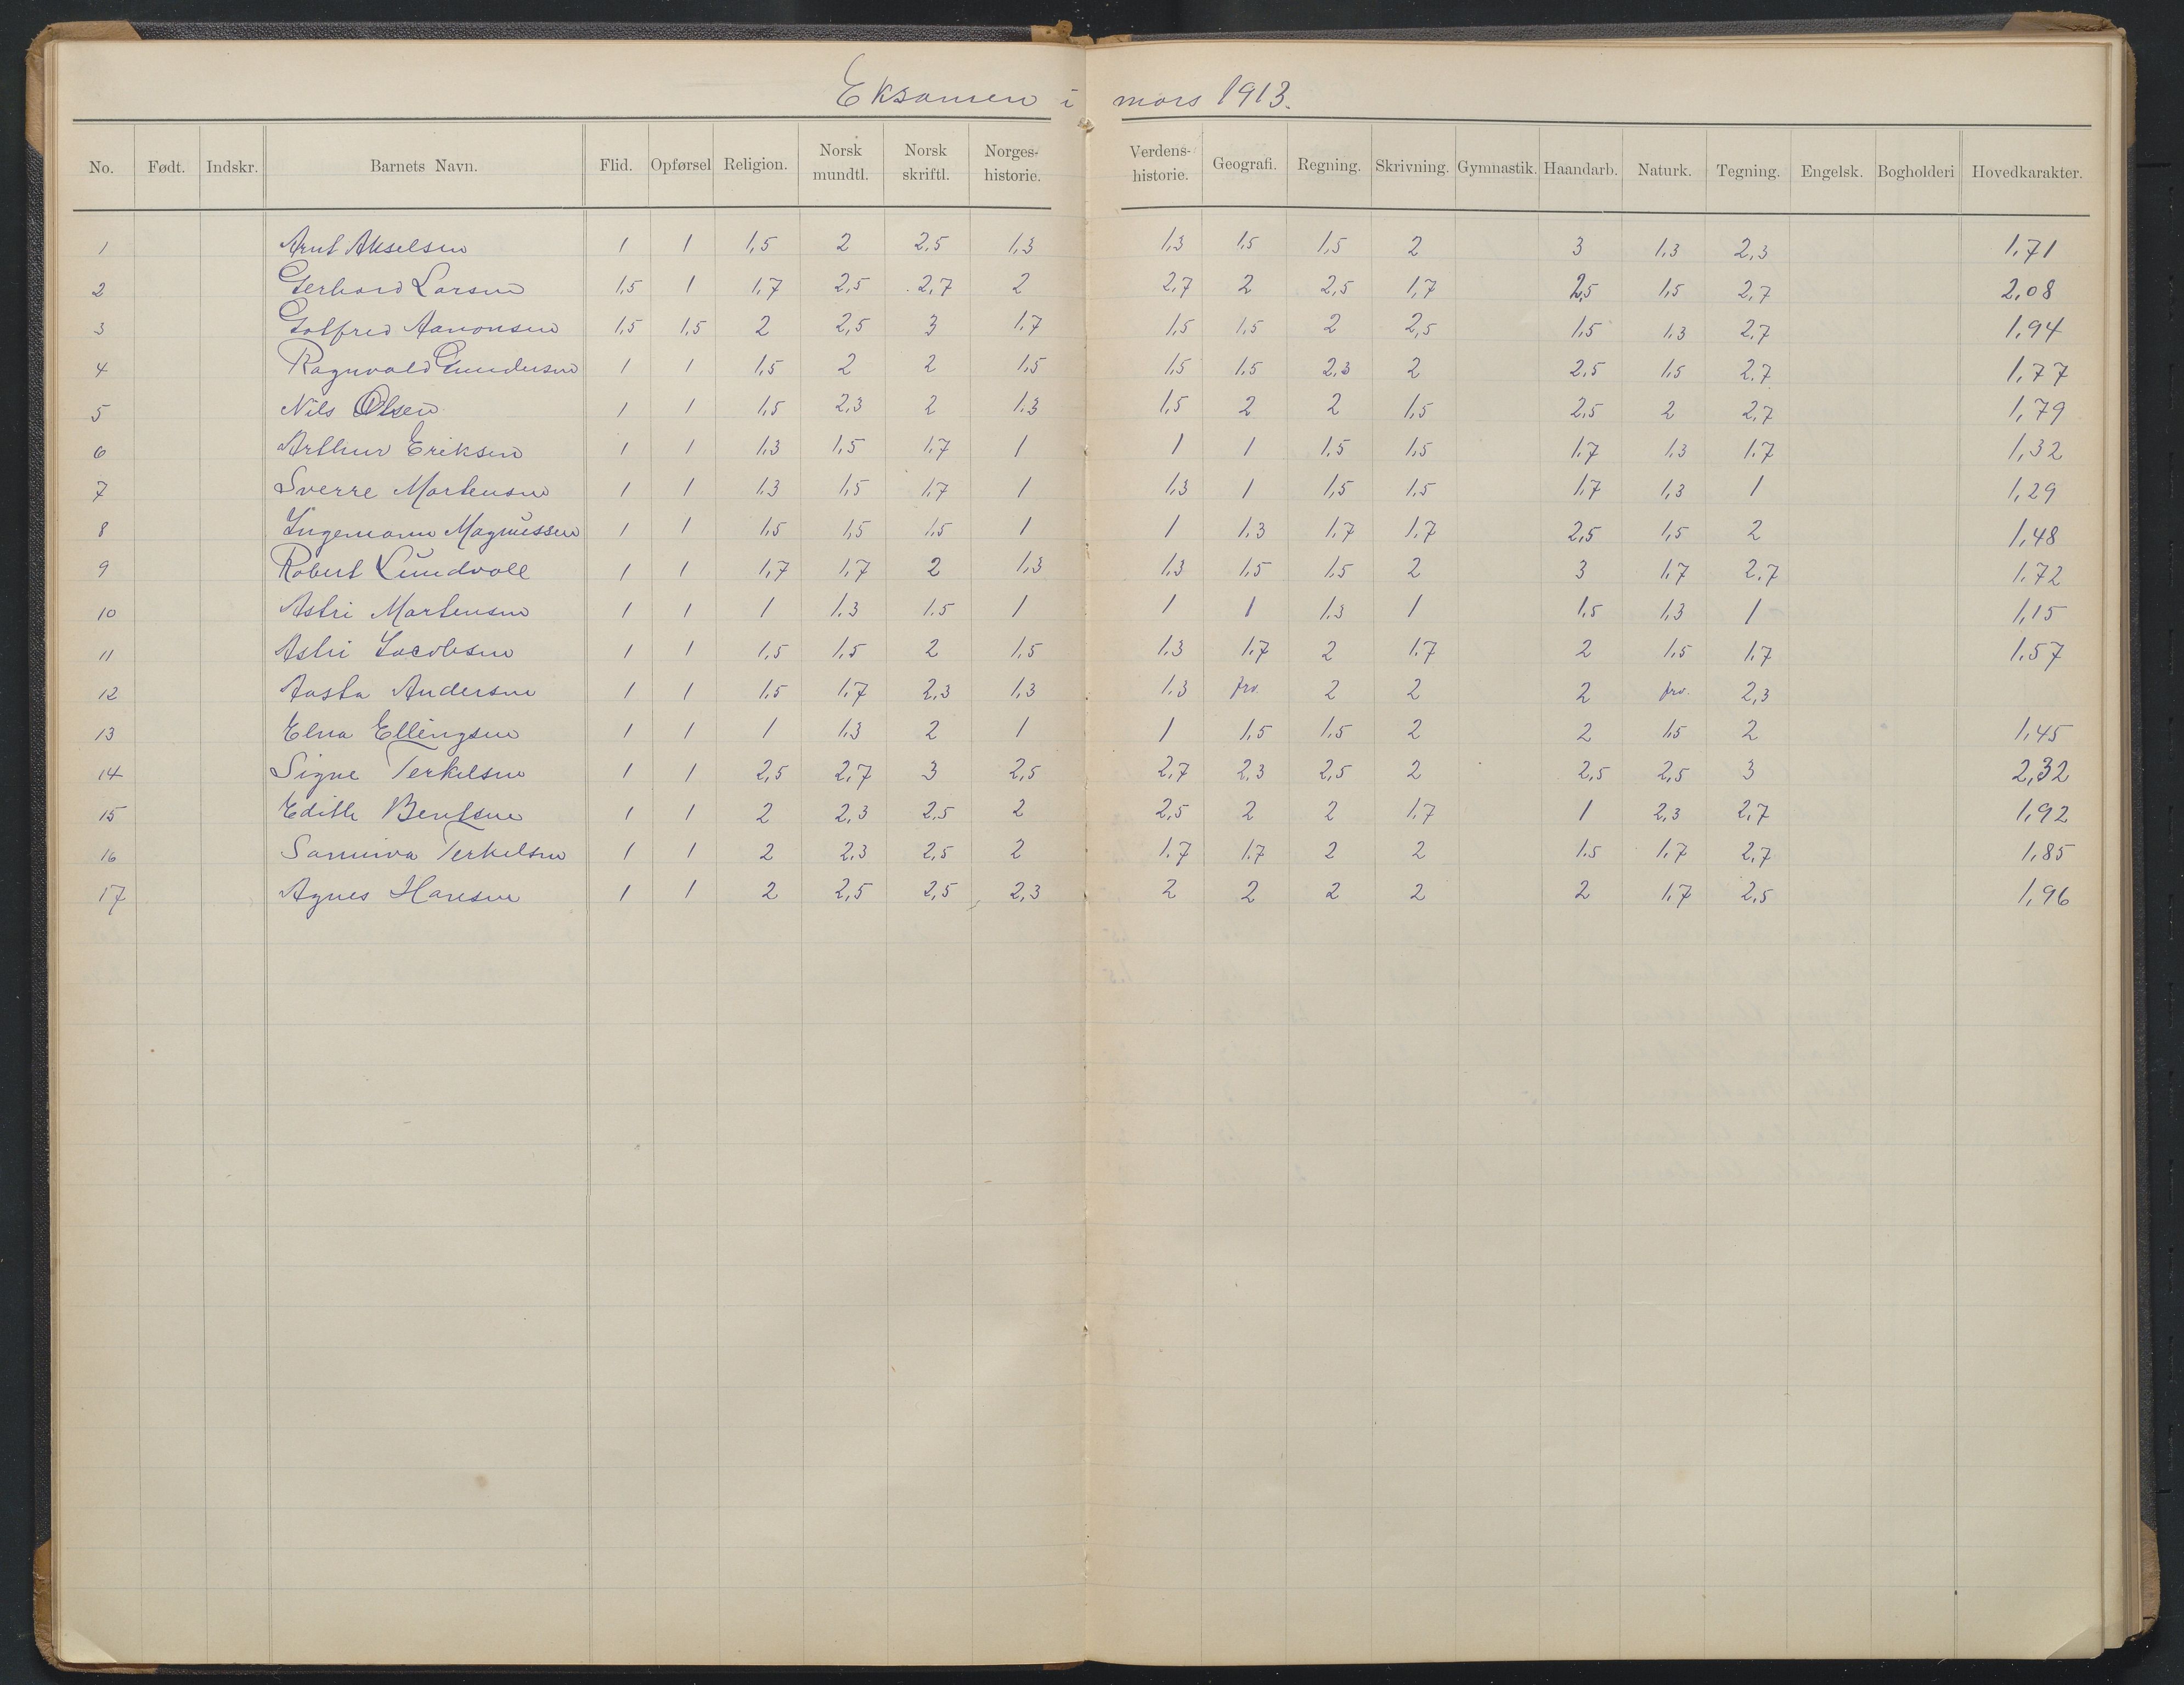 Eksamen i mars 1913.
No. Født. Indskr. Barnets Navn. Flid. Opførsel Religion. Norsk mundtl. Norsk skriftl. Norges-historie. Verdens-historie. Geografi. Regning. Skrivning. Gymnastik. Haandarb. Naturk. Tegning. Engelsk. Bogholderi Hovedkarakter.
1 Arnt Akselsen 1 1 1,5 2 2,5 1,3 1,3 1,5 1,5 2 3 1,3 2,3 1,71
2 Gerhard Larsen 1,5 1 1,7 2,5 2,7 2 2,7 2 2,5 1,7 2,5 1,5 2,7 2,08
3 Golfred Aanonsen 1,5 1,5 2 2,5 3 1,7 1,5 1,5 2 2,5 1,5 1,3 2,7 1,94
4 Ragnvald Gundersen 1 1 1,5 2 2 1,5 1,5 1,5 2,3 2 2,5 1,5 2,7 1,77
5 Nils Olsen 1 1 1,5 2,3 2 1,3 1,5 2 2 1,5 2,5 2 2,7 1,79
6 Arthur Eriksen 1 1 1,3 1,5 1,7 1 1 1 1,5 1,5 1,7 1,3 1,7 1,32
7 Sverre Martensen 1 1 1,3 1,5 1,7 1 1,3 1 1,5 1,5 1,7 1,3 1 1,29
8 Ingemann Magnussen 1 1 1,5 1,5 1,5 1 1 1,3 1,7 1,7 2,5 1,5 2 1,48
9 Robert Lundvall 1 1 1,7 1,7 2 1,3 1,3 1,5 1,5 2 3 1,7 2,7 1,72
10 Astri Martensen 1 1 1 1,3 1,5 1 1 1 1,3 1 1,5 1,3 1 1,15
11 Astri Jacobsen 1 1 1,5 1,5 2 1,5 1,3 1,7 2 1,7 2 1,5 1,7 1,57
12 Aasta Andersen 1 1 1,5 1,7 2,3 1,3 1,3 frv. 2 2 2 frv. 2,3
13 Elna Ellingsen 1 1 1 1,3 2 1 1 1,5 1,5 2 2 1,5 2 1,45
14 Signe Terkelsen 1 1 2,5 2,7 3 2,5 2,7 2,3 2,5 2 2,5 2,5 3 2,32
15 Edith Bentsen 1 1 2 2,3 2,5 2 2,5 2 2 1,7 1 2,3 2,7 1,92
16 Sanniva Terkelsen 1 1 2 2,3 2,5 2 1,7 1,7 2 2 1,5 1,7 2,7 1,85
17 Agnes Hansen 1 1 2 2,5 2,5 2,3 2 2 2 2 2 1,7 2,5 1,96